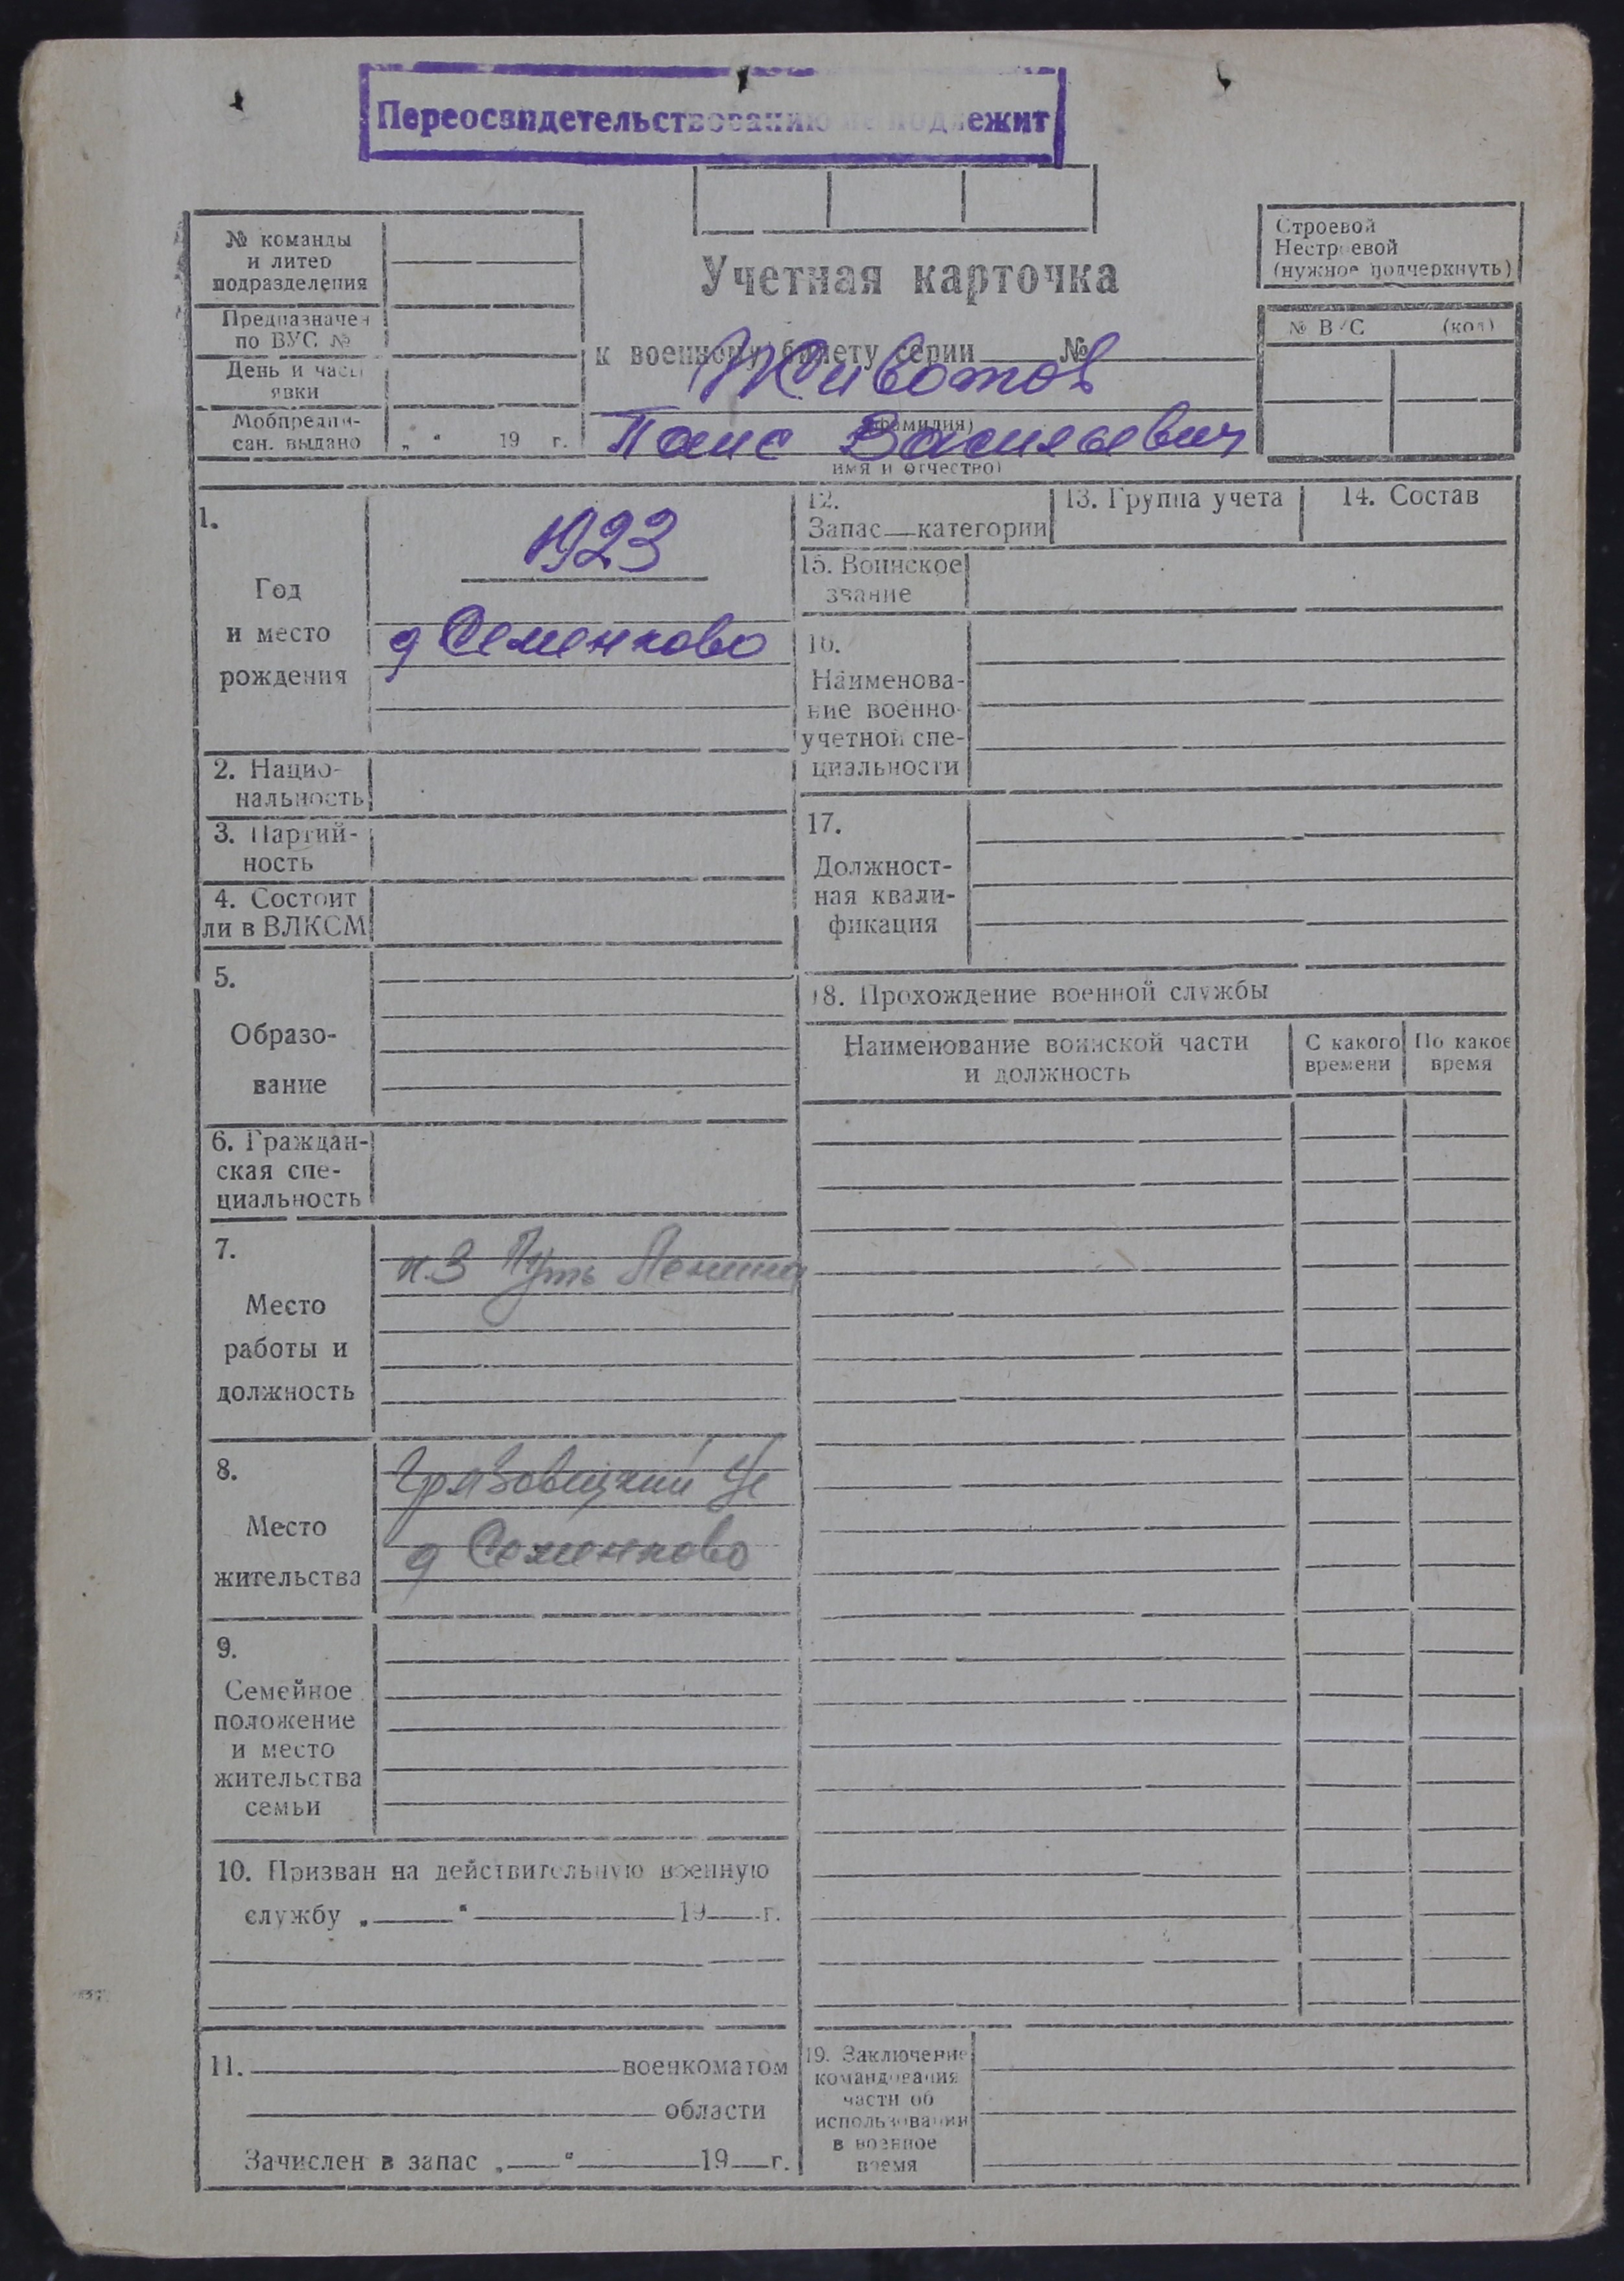 Переосвидетельствованию не подлежит
№ команды
и литер
подразделения
Предназначен
по ВУС №
День и часы
явки
Мобпредпи-
сан. выдано „ “ 19 г.
Учетная карточка
к военному билету серии №
Животов
(фамилия)
Паис Васильевич
имя и отчество)
Строевой
Нестроевой
(нужное подчеркнуть)
№ ВУС (код)
1.
Год
и место
рождения
1923
д Семенково
2. Нацио-
нальность
3. Партий-
ность
4. Состоит
ли в ВЛКСМ
5.
Образо-
вание
6. Граждан-
ская спе-
циальность
7.
Место
работы и
должность
к.з Путь Ленина
8.
Место
жительства
Грязовицкий
д Семенково
9.
Семейное
положение
и место
жительства
семьи
10. Призван на действительную военную
службу „ “ 19 г.
11. военкоматом
области
Зачислен в запас „ “ 19 г.
12.
Запас категории
13. Группа учета
14. Состав
15. Воинское
звание
16.
Наименова-
ние военно-
учетной спе-
циальности
17.
Должност-
ная квали-
фикация
18. Прохождение военной службы
Наименование воинской части
и должность
С какого
времени
По какое
время
19. Заключение
командования
части об
использовании
в военное
время